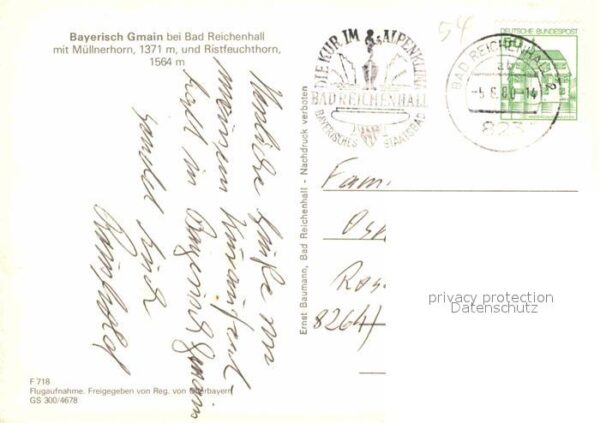 Bayerisch Gmain bei Bad Reichenhall
mit Müllnerhorn, 1371 m, und Ristfeuchthorn,
1564 m
Herzliche Grüße von
meinem
in Bayerisch Gmain
sendet Euch
F 718
Flugaufnahme. Freigegeben von Reg. von Oberbayern
GS 300/4678
Ernst Baumann, Bad Reichenhall - Nachdruck verboten
54
DIE KUR IM ALPENKLIMA
BAD REICHENHALL
BAYERISCHES STAATSBAD
BAD REICHENHALL 2
-5.8.80-14
823
DEUTSCHE BUNDESPOST
50
Fam.
Ros
8264
privacy protection
Datenschutz